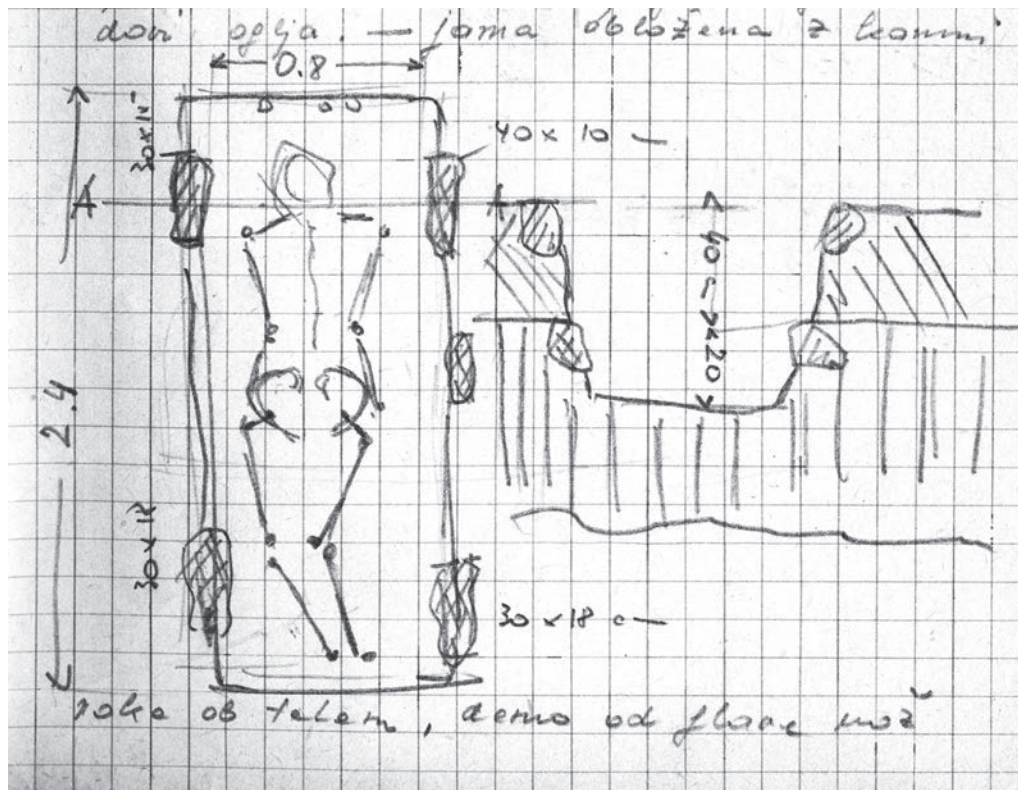 dovi oglja. — jama obložena z kamni
0.8
30x15
40 x 10 —
A
A
40 c
20
2.4
30 x 18
30 x 18 c —
roke ob telesu, desno od glave nož